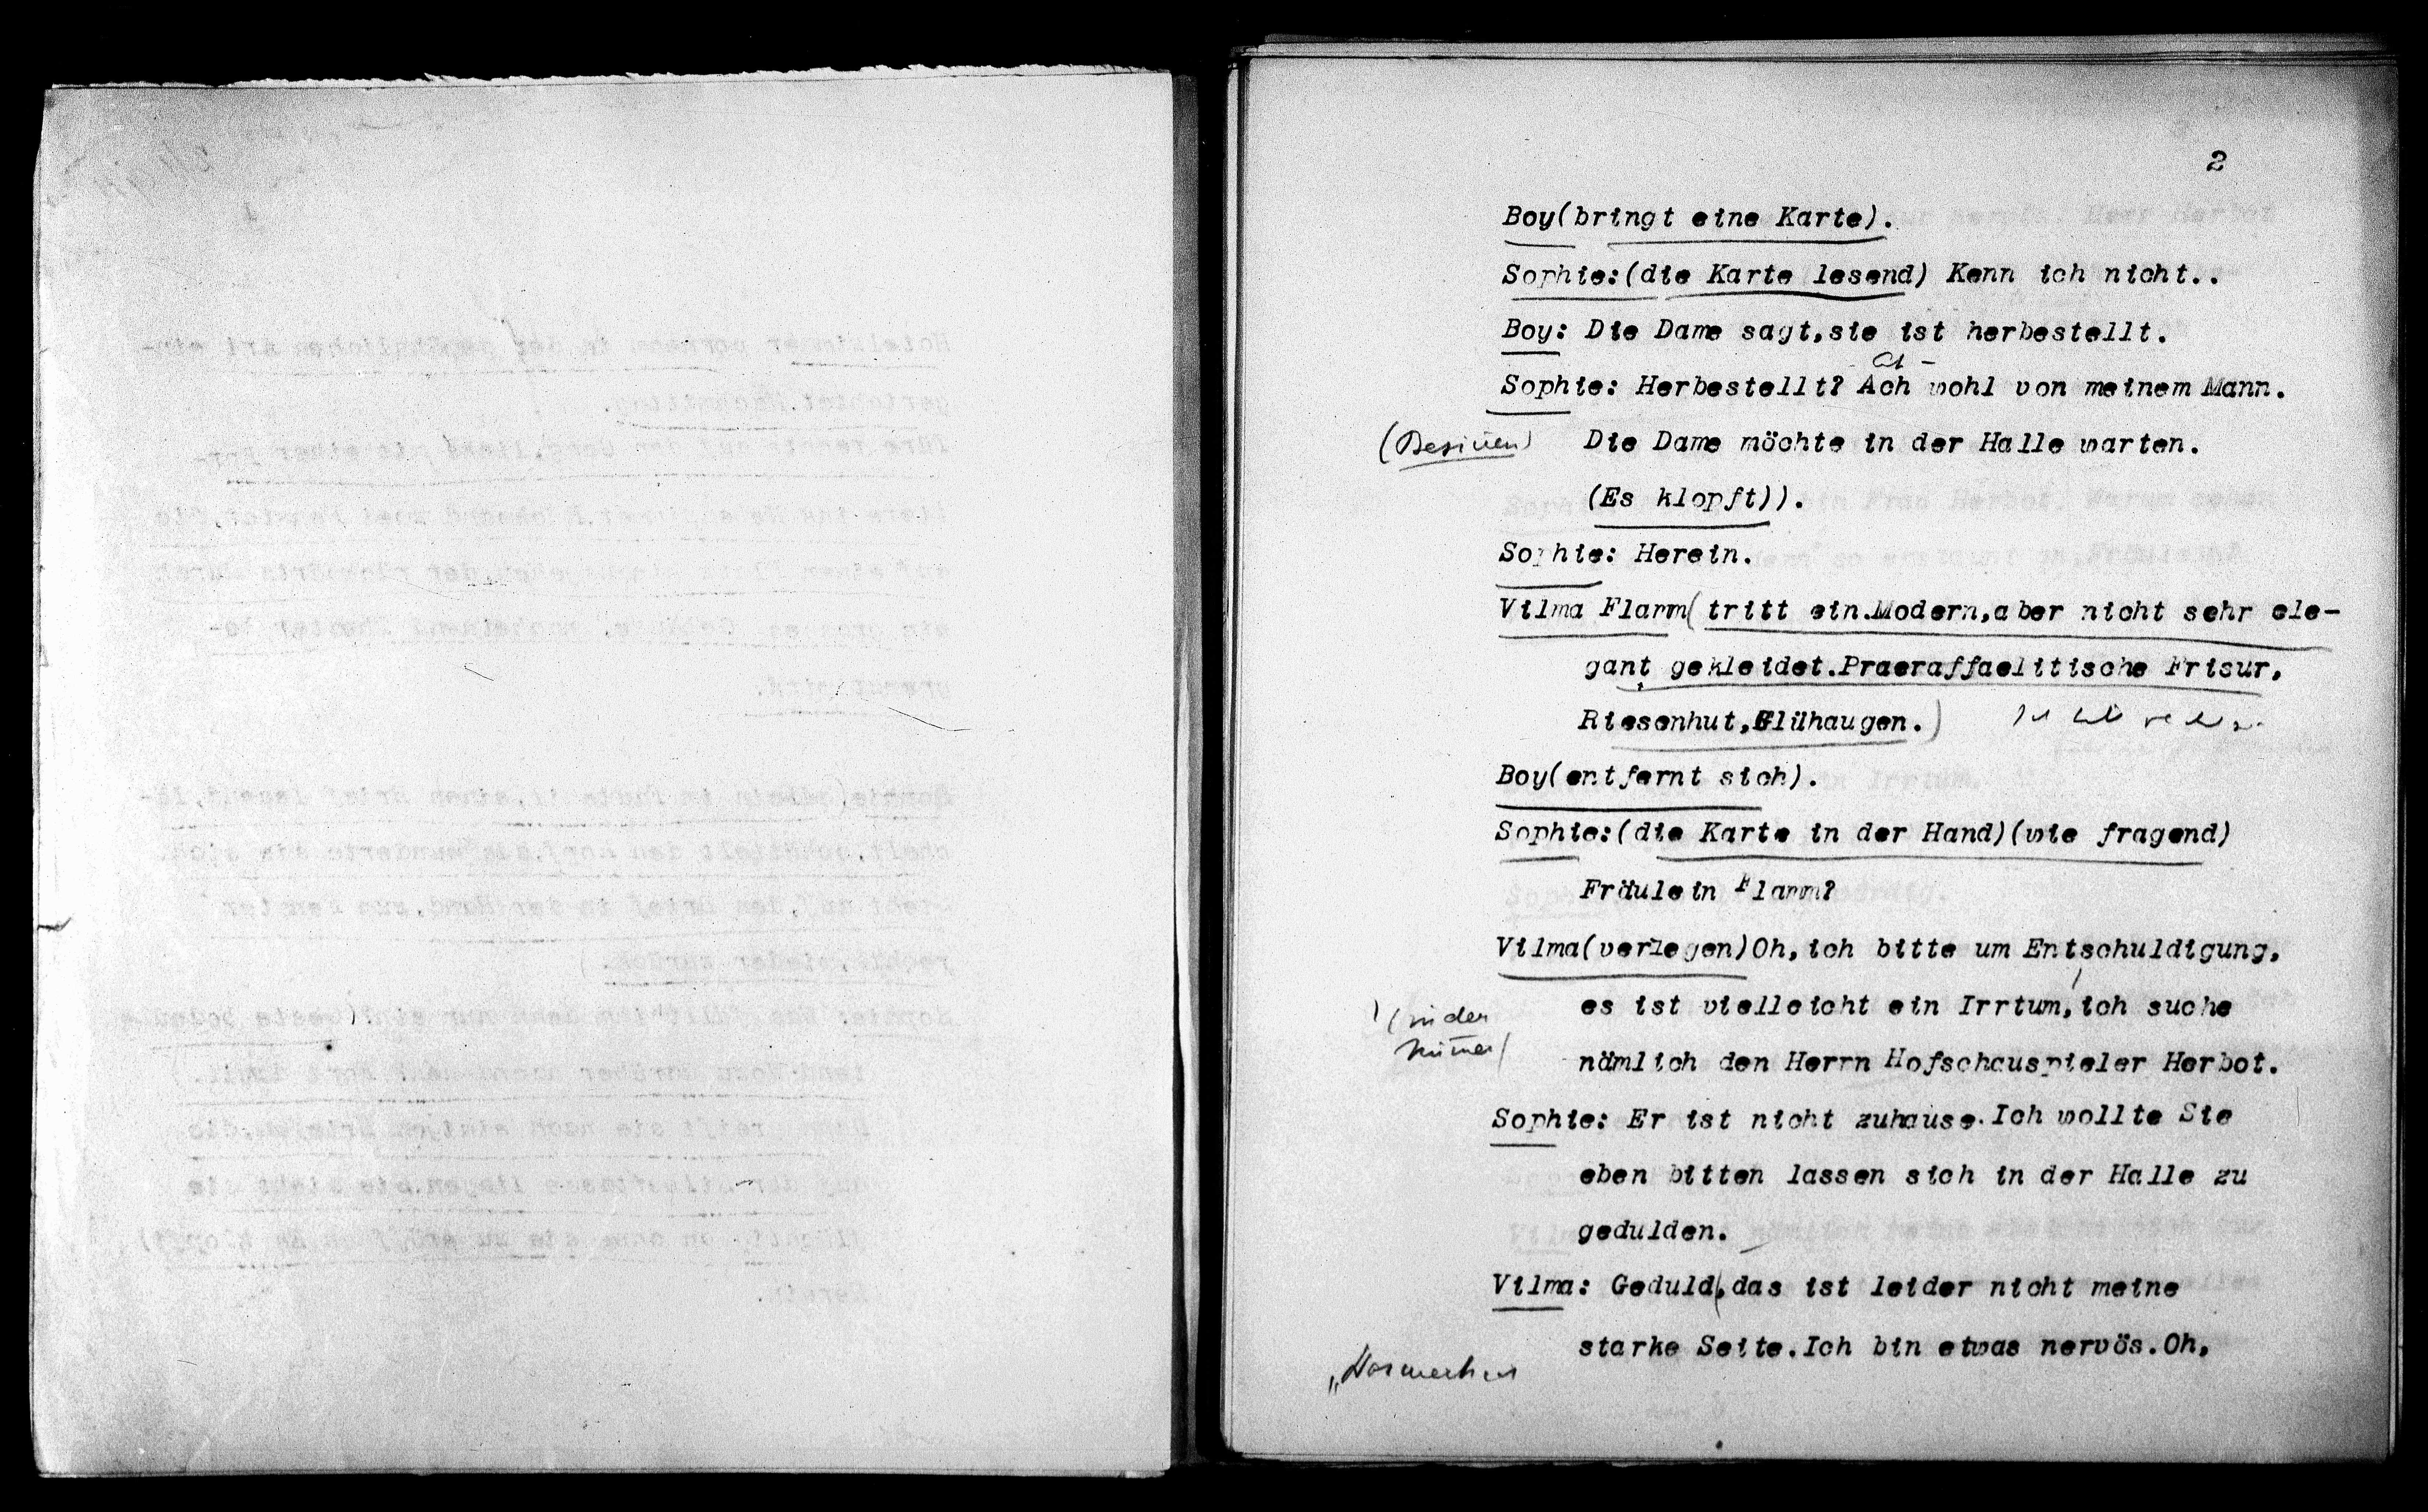 2
Boy(bringt eine Karte).
Sophie:(die Karte lesend) Kenn ich nicht..
Boy: Die Dame sagt,sie ist herbestellt.
Sophie: Herbestellt? Ach wohl von meinem Mann.
Die Dame möchte in der Halle warten.
(Es klopft)).
Sophie: Herein.
Vilma Flamm(tritt ein.Modern,aber nicht sehr ele-
gant gekleidet.Praeraffaelitische Frisur,
Riesenhut,Glühaugen.)
Boy(entfernt sich).
Sophie:(die Karte in der Hand)(wie fragend)
Fräulein Flamm?
Vilma(verlegen)Oh,ich bitte um Entschuldigung,
es ist vielleicht ein Irrtum,ich suche
(in der
nämlich den Herrn Hofschauspieler Herbot.
Sophie: Er ist nicht zuhause.Ich wollte Sie
eben bitten lassen sich in der Halle zu
gedulden.
Vilma: Geduld,das ist leider nicht meine
starke Seite.Ich bin etwas nervös.Oh,